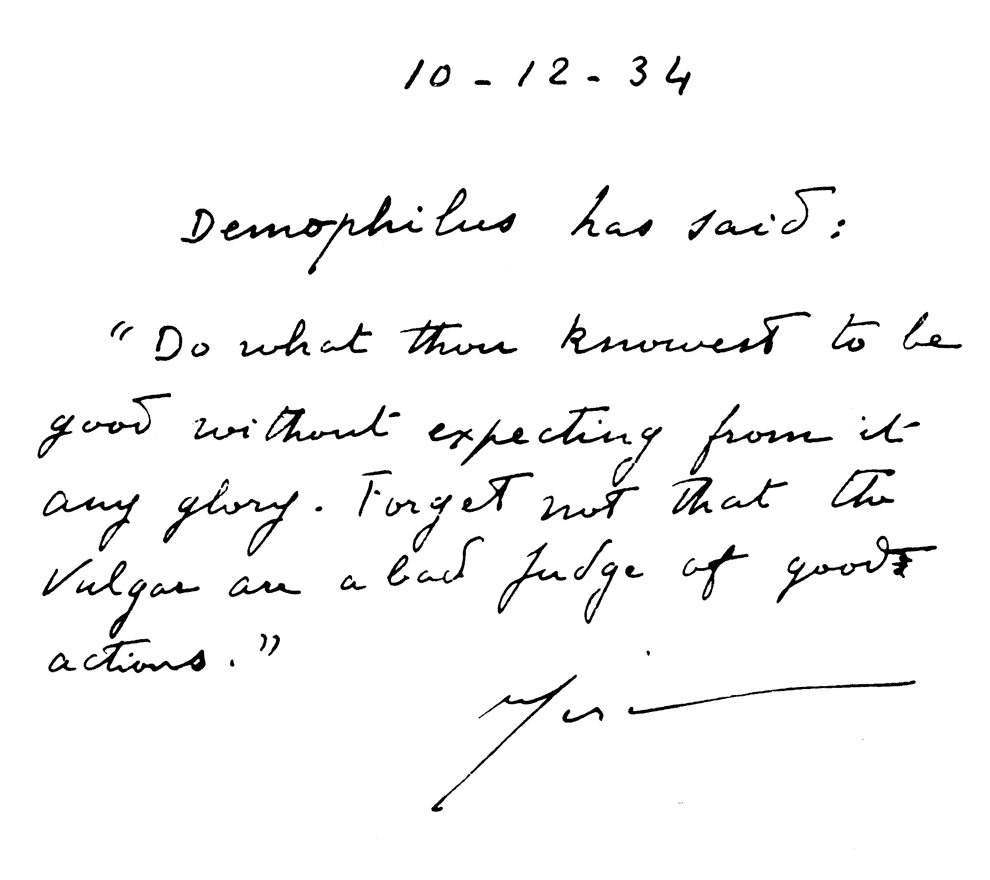 10-12-34
Demophilus has said:
“Do what thou knowest to be
good without expecting from it
any glory. Forget not that the
Vulgar are a bad judge of good
actions.”